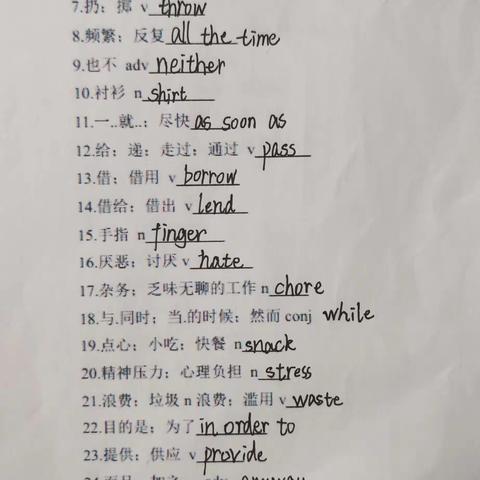 7.扔；掷 v throw
8.频繁；反复 all the time
9.也不 adv neither
10.衬衫 n shirt
11.一..就..；尽快 as soon as
12.给；递；走过；通过 v pass
13.借；借用 v borrow
14.借给；借出 v lend
15.手指 n finger
16.厌恶；讨厌 v hate
17.杂务；乏味无聊的工作 n chore
18.与.同时；当.的时候；然而 conj while
19.点心；小吃；快餐 n snack
20.精神压力；心理负担 n stress
21.浪费；垃圾 n 浪费；滥用 v waste
22.目的是；为了 in order to
23.提供；供应 v provide